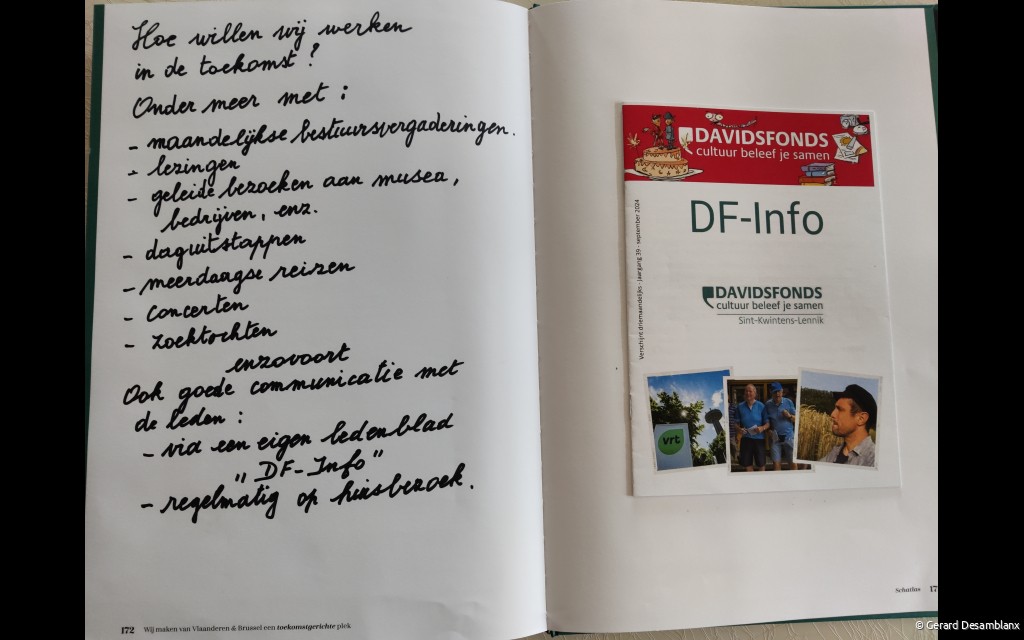 Hoe willen wij werken
in de toekomst ?
Onder meer met :
- maandelijkse bestuursvergaderingen.
- lezingen
- geleide bezoeken aan musea,
bedrijven, enz.
- daguitstappen
- meerdaagse reizen
- concerten
- zoektochten
enzovoort
Ook goede communicatie met
de leden :
- via een eigen ledenblad
" DF-Info"
- regelmatig op huisbezoek.
172 Wij maken van Vlaanderen & Brussel een toekomstgerichte plek
DAVIDSFONDS
cultuur beleef je samen
DF-Info
Verschijnt driemaandelijks - jaargang 39 - september 2024
DAVIDSFONDS
cultuur beleef je samen
Sint-Kwintens-Lennik
vrt
© Gerard Desamblanx